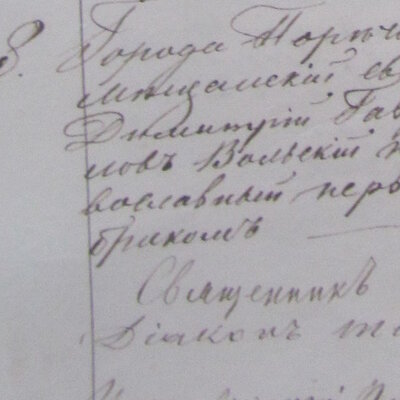 8. Города Порѣч
мѣщанскій сы
Димитрій Гав
ловъ Вольскій п
вославный перв
бракомъ
Священникъ
Діаконъ